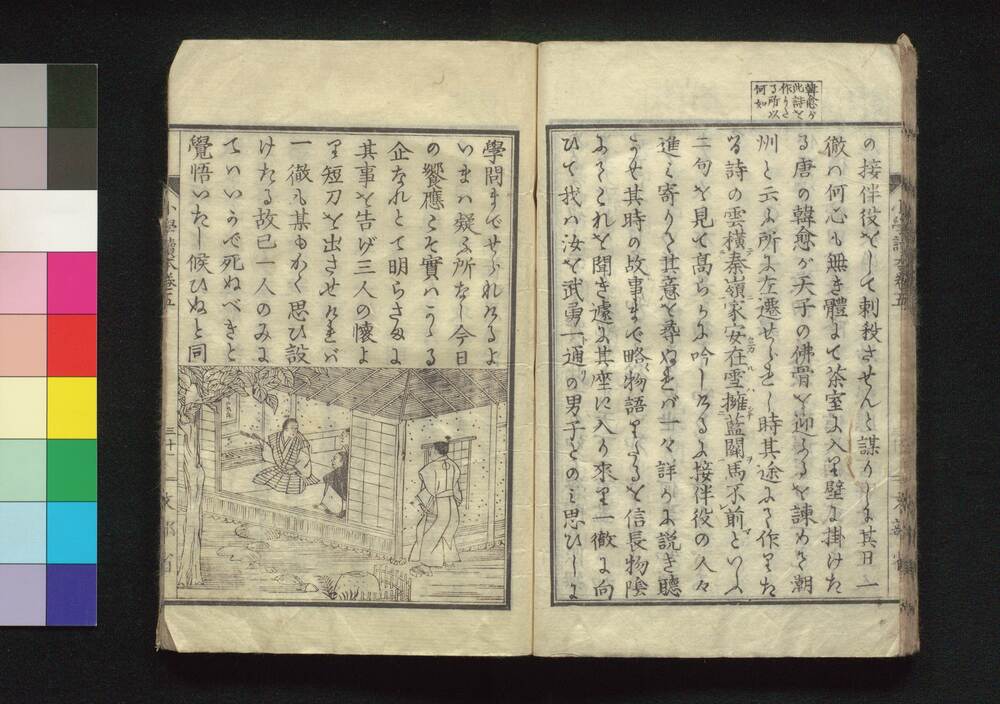 韓愈が
此詩を
作りた
る所以
何如
の接伴役をして刺殺させんと謀りしに其日一
徹ハ何心も無き體にて茶室に入り壁に掛けた
る唐の韓愈が天子の佛骨を迎ふるを諫めて潮
州と云ふ所に左遷せられし時其途にて作りた
る詩の雲横秦嶺家安在雪擁藍關馬不前といふ
二句を見て高らかに吟しけるに接伴役の人々
進み寄りて其意を尋ぬれバ一々詳かに説き聽
かせ其時の故事まで略物語りたるを信長物陰
にてこれを聞き遽に其座に入り來り一徹に向
ひて我ハ汝を武勇一通の男子とのミ思ひしに
小學讀本卷五
學問までせられけるよ
いまハ疑ふ所なし今日
の饗應こそ實ハかゝる
企なれとて明らさまに
其事を告げ三人の懷よ
り短刀を出させけれバ
一徹も某もかく思ひ設
けたる故已一人のみに
ていかで死ぬべきと
覺悟いたし候ひぬと同
小學讀本卷五
三十一
文部省